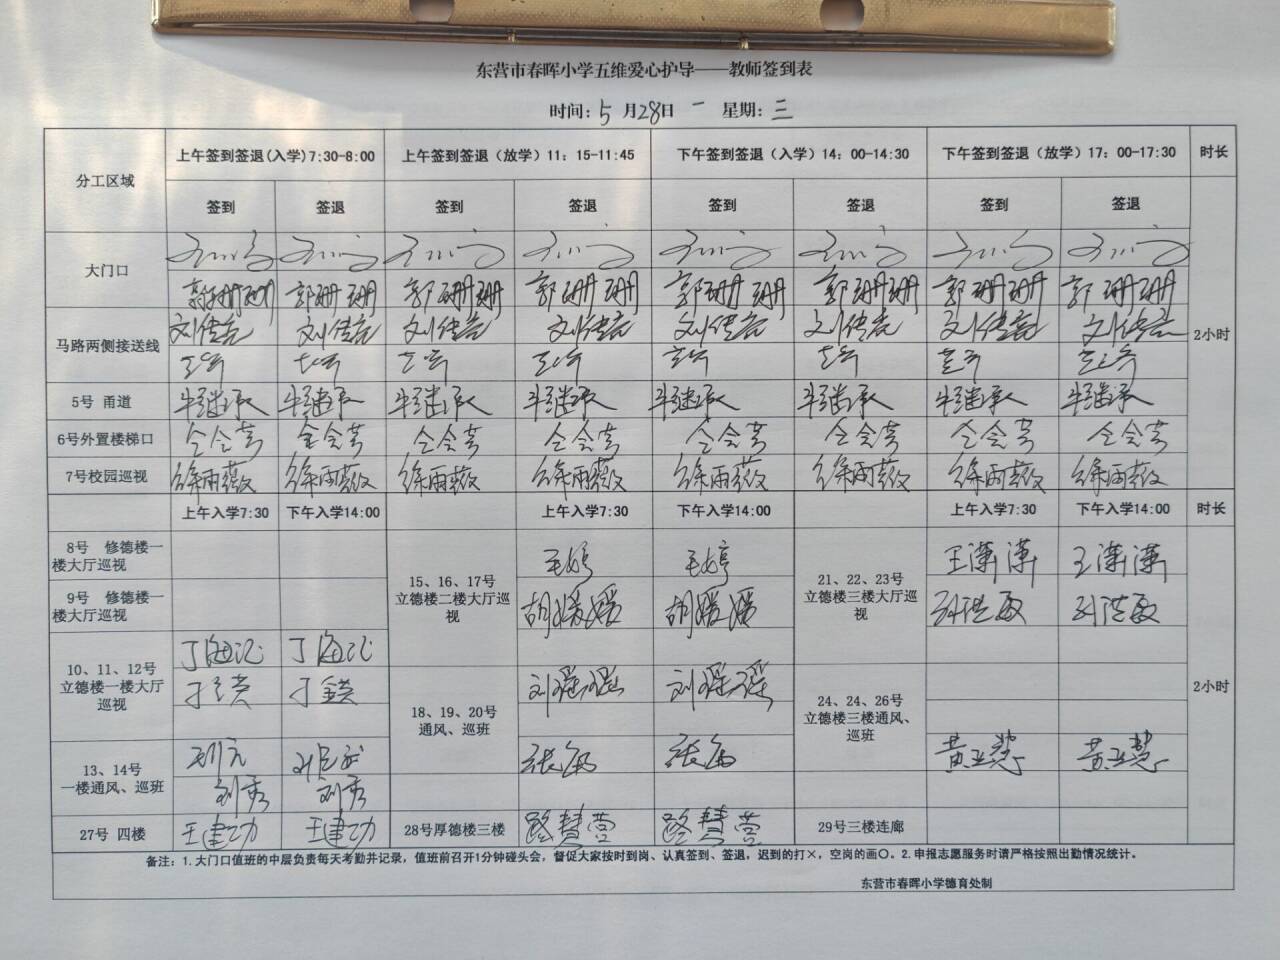 东营市春晖小学五维爱心护导——教师签到表
时间：5 月28日 一 星期：三
分工区域 上午签到签退(入学)7:30-8:00 上午签到签退（放学）11：15-11:45 下午签到签退（入学）14：00-14:30 下午签到签退（放学）17：00-17:30 时长
签到 签退 签到 签退 签到 签退 签到 签退
大门口
郭珊珊 郭珊珊 郭珊珊 郭珊珊 郭珊珊 郭珊珊 郭珊珊 郭珊珊
马路两侧接送线 2小时
刘传亮 刘传亮 刘传亮 刘传亮 刘传亮 刘传亮 刘传亮 刘传亮
5号 甬道 牛继承 牛继承 牛继承 牛继承 牛继承 牛继承 牛继承 牛继承
6号外置楼梯口 仝会芳 仝会芳 仝会芳 仝会芳 仝会芳 仝会芳 仝会芳 仝会芳
7号校园巡视 徐雨薇 徐雨薇 徐雨薇 徐雨薇 徐雨薇 徐雨薇 徐雨薇 徐雨薇
上午入学7:30 下午入学14:00 上午入学7:30 下午入学14:00 上午入学7:30 下午入学14:00 时长
8号 修德楼一楼大厅巡视 15、16、17号 立德楼二楼大厅巡视 毛婷 毛婷 21、22、23号 立德楼三楼大厅巡视 王潇潇 王潇潇
9号 修德楼一楼大厅巡视 胡媛媛 胡媛媛 孙洪敏 孙洪敏
10、11、12号 立德楼一楼大厅巡视 2小时
18、19、20号 通风、巡班 刘瑶瑶 刘瑶瑶 24、24、26号 立德楼三楼通风、巡班
13、14号 一楼通风、巡班 黄亚慧 黄亚慧
刘秀 刘秀
27号 四楼 王建功 王建功 28号厚德楼三楼 路慧莹 路慧莹 29号三楼连廊
备注：1.大门口值班的中层负责每天考勤并记录，值班前召开1分钟碰头会，督促大家按时到岗、认真签到、签退，迟到的打×，空岗的画〇。2.申报志愿服务时请严格按照出勤情况统计。
东营市春晖小学德育处制